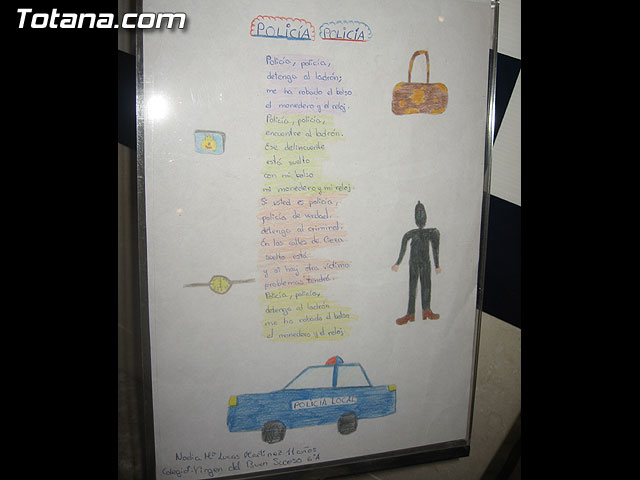 Totana.com
POLICÍA POLICÍA
Policía, policía,
detenga al ladrón,
me ha robado el bolso
el monedero y el reloj.
Policía, policía,
encuentre al ladrón.
Ese delincuente
está suelto
con mi bolso
mi monedero y mi reloj.
Si usted es policía,
policía de verdad.
detenga al criminal.
En las calles de Cieza
suelto está
y si hay otra víctima
problemas tendrá.
Policía, policía,
detenga al ladrón
me ha robado el bolso
el monedero y el reloj.
POLICIA LOCAL
Nadia Mª Lucas Martínez
Colegio: Virgen del Buen Suceso 6º A